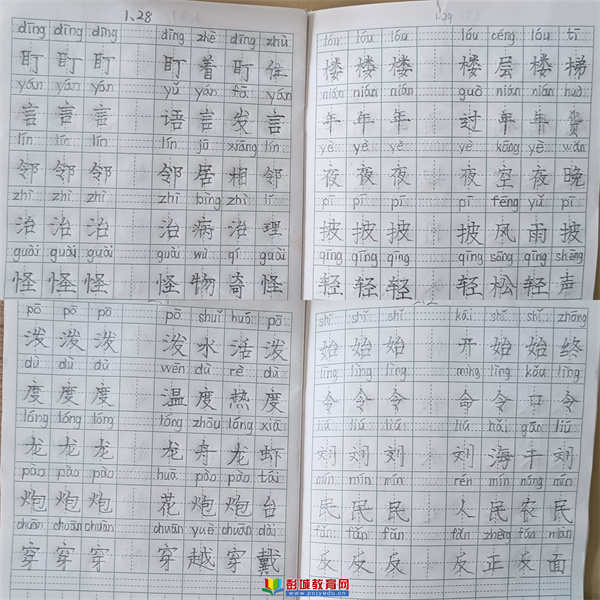 1、28
dīng dīng dīng dīng zhē dīng zhù
盯 盯 盯 盯 着 盯 住
yán yán yán yǔ yán fā yán
言 言 言 语 言 发 言
lín lín lín lín jū xiāng lín
邻 邻 邻 邻 居 相 邻
zhì zhì zhì zhì bìng zhì lǐ
治 治 治 治 病 治 理
guài guài guài guài wù qí guài
怪 怪 怪 怪 物 奇 怪
1.29
lóu lóu lóu lóu céng lóu tī
楼 楼 楼 楼 层 楼 梯
nián nián nián guò nián nián huò
年 年 年 过 年 年
yè yè yè yè kōng yē wǎn
夜 夜 夜 夜 空 夜 晚
pī pī pī pī fēng yǔ pī
披 披 披 披 风 雨 披
qīng qīng qīng qīng sōng qīng shēng
轻 轻 轻 轻 松 轻 声
pō pō pō pō shuǐ huó pō
泼 泼 泼 泼 水 活 泼
dù dù dù wēn dù rè dù
度 度 度 温 度 热 度
lóng lóng lóng lóng zhōu lóng xiā
龙 龙 龙 龙 舟 龙 虾
pào pào pào huā pào pào tái
炮 炮 炮 花 炮 炮 台
chuān chuān chuān chuān yuè chuān dài
穿 穿 穿 穿 越 穿 戴
shǐ shǐ shǐ kāi shǐ shǐ zhōng
始 始 始 开 始 始 终
lìng lìng lìng mìng lìng kǒu lìng
令 令 令 命 令 口 令
liú liú liú liú hǎi gān liú
刘 刘 刘 刘 海 干 刘
mín mín mín rén mín nóng mín
民 民 民 人 民 农 民
fǎn fǎn fǎn fǎn zhèng fǎn miàn
反 反 反 反 正 反 面
彭城教育网
www.pcjyedu.cn